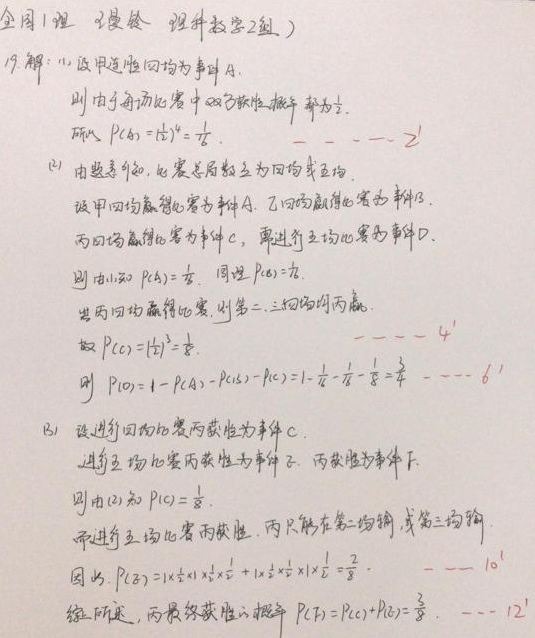 全国1理 理科数学2组)
19.解:(1)设甲连胜四场为事件A.
则由于每场比赛中双方获胜概率都为1/2.
所以 P(A)=(1/2)^4=1/16. - - - - - 2'
(2) 由题意可知,比赛总局数应为四场或五场.
设甲四场赢得比赛为事件A. 乙四场赢得比赛为事件B.
丙四场赢得比赛为事件C, 需进行五场比赛为事件D.
则由(1)知 P(A)=1/16. 同理P(B)=1/16.
丙四场赢得比赛,则第二.三.四场均丙赢.
故 P(C)=(1/2)^3=1/8. - - - - 4'
则 P(D)=1-P(A)-P(B)-P(C)=1-1/16-1/16-1/8=3/4 - - - - 6'
(3) 设进行四场比赛丙获胜为事件C.
进行五场比赛丙获胜为事件E. 丙获胜为事件F.
则由(2)知 P(C)=1/8.
而进行五场比赛丙获胜.丙只能在第二场输,或第三场输
因此.P(E)=1×1/2×1×1/2×1/2+1×1/2×1/2×1×1/2=2/8. - - - 10'
综上所述,丙最终获胜的概率 P(F)=P(C)+P(E)=3/8. - - - 12'